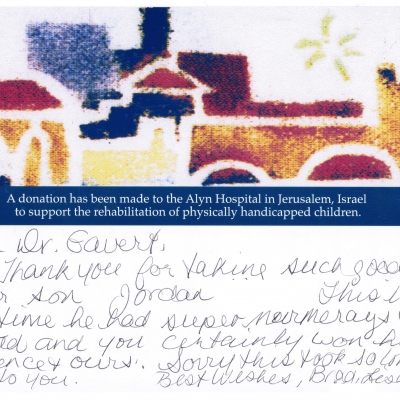 A donation has been made to the Alyn Hospital in Jerusalem, Israel
to support the rehabilitation of physically handicapped children.
Dr. Gavert,
Thank you for taking such good
r son Jordan This
time he had super
ad and you certainly won h
ence & ours. Sorry this took so lon
to you. Best Wishes, Brad, Les